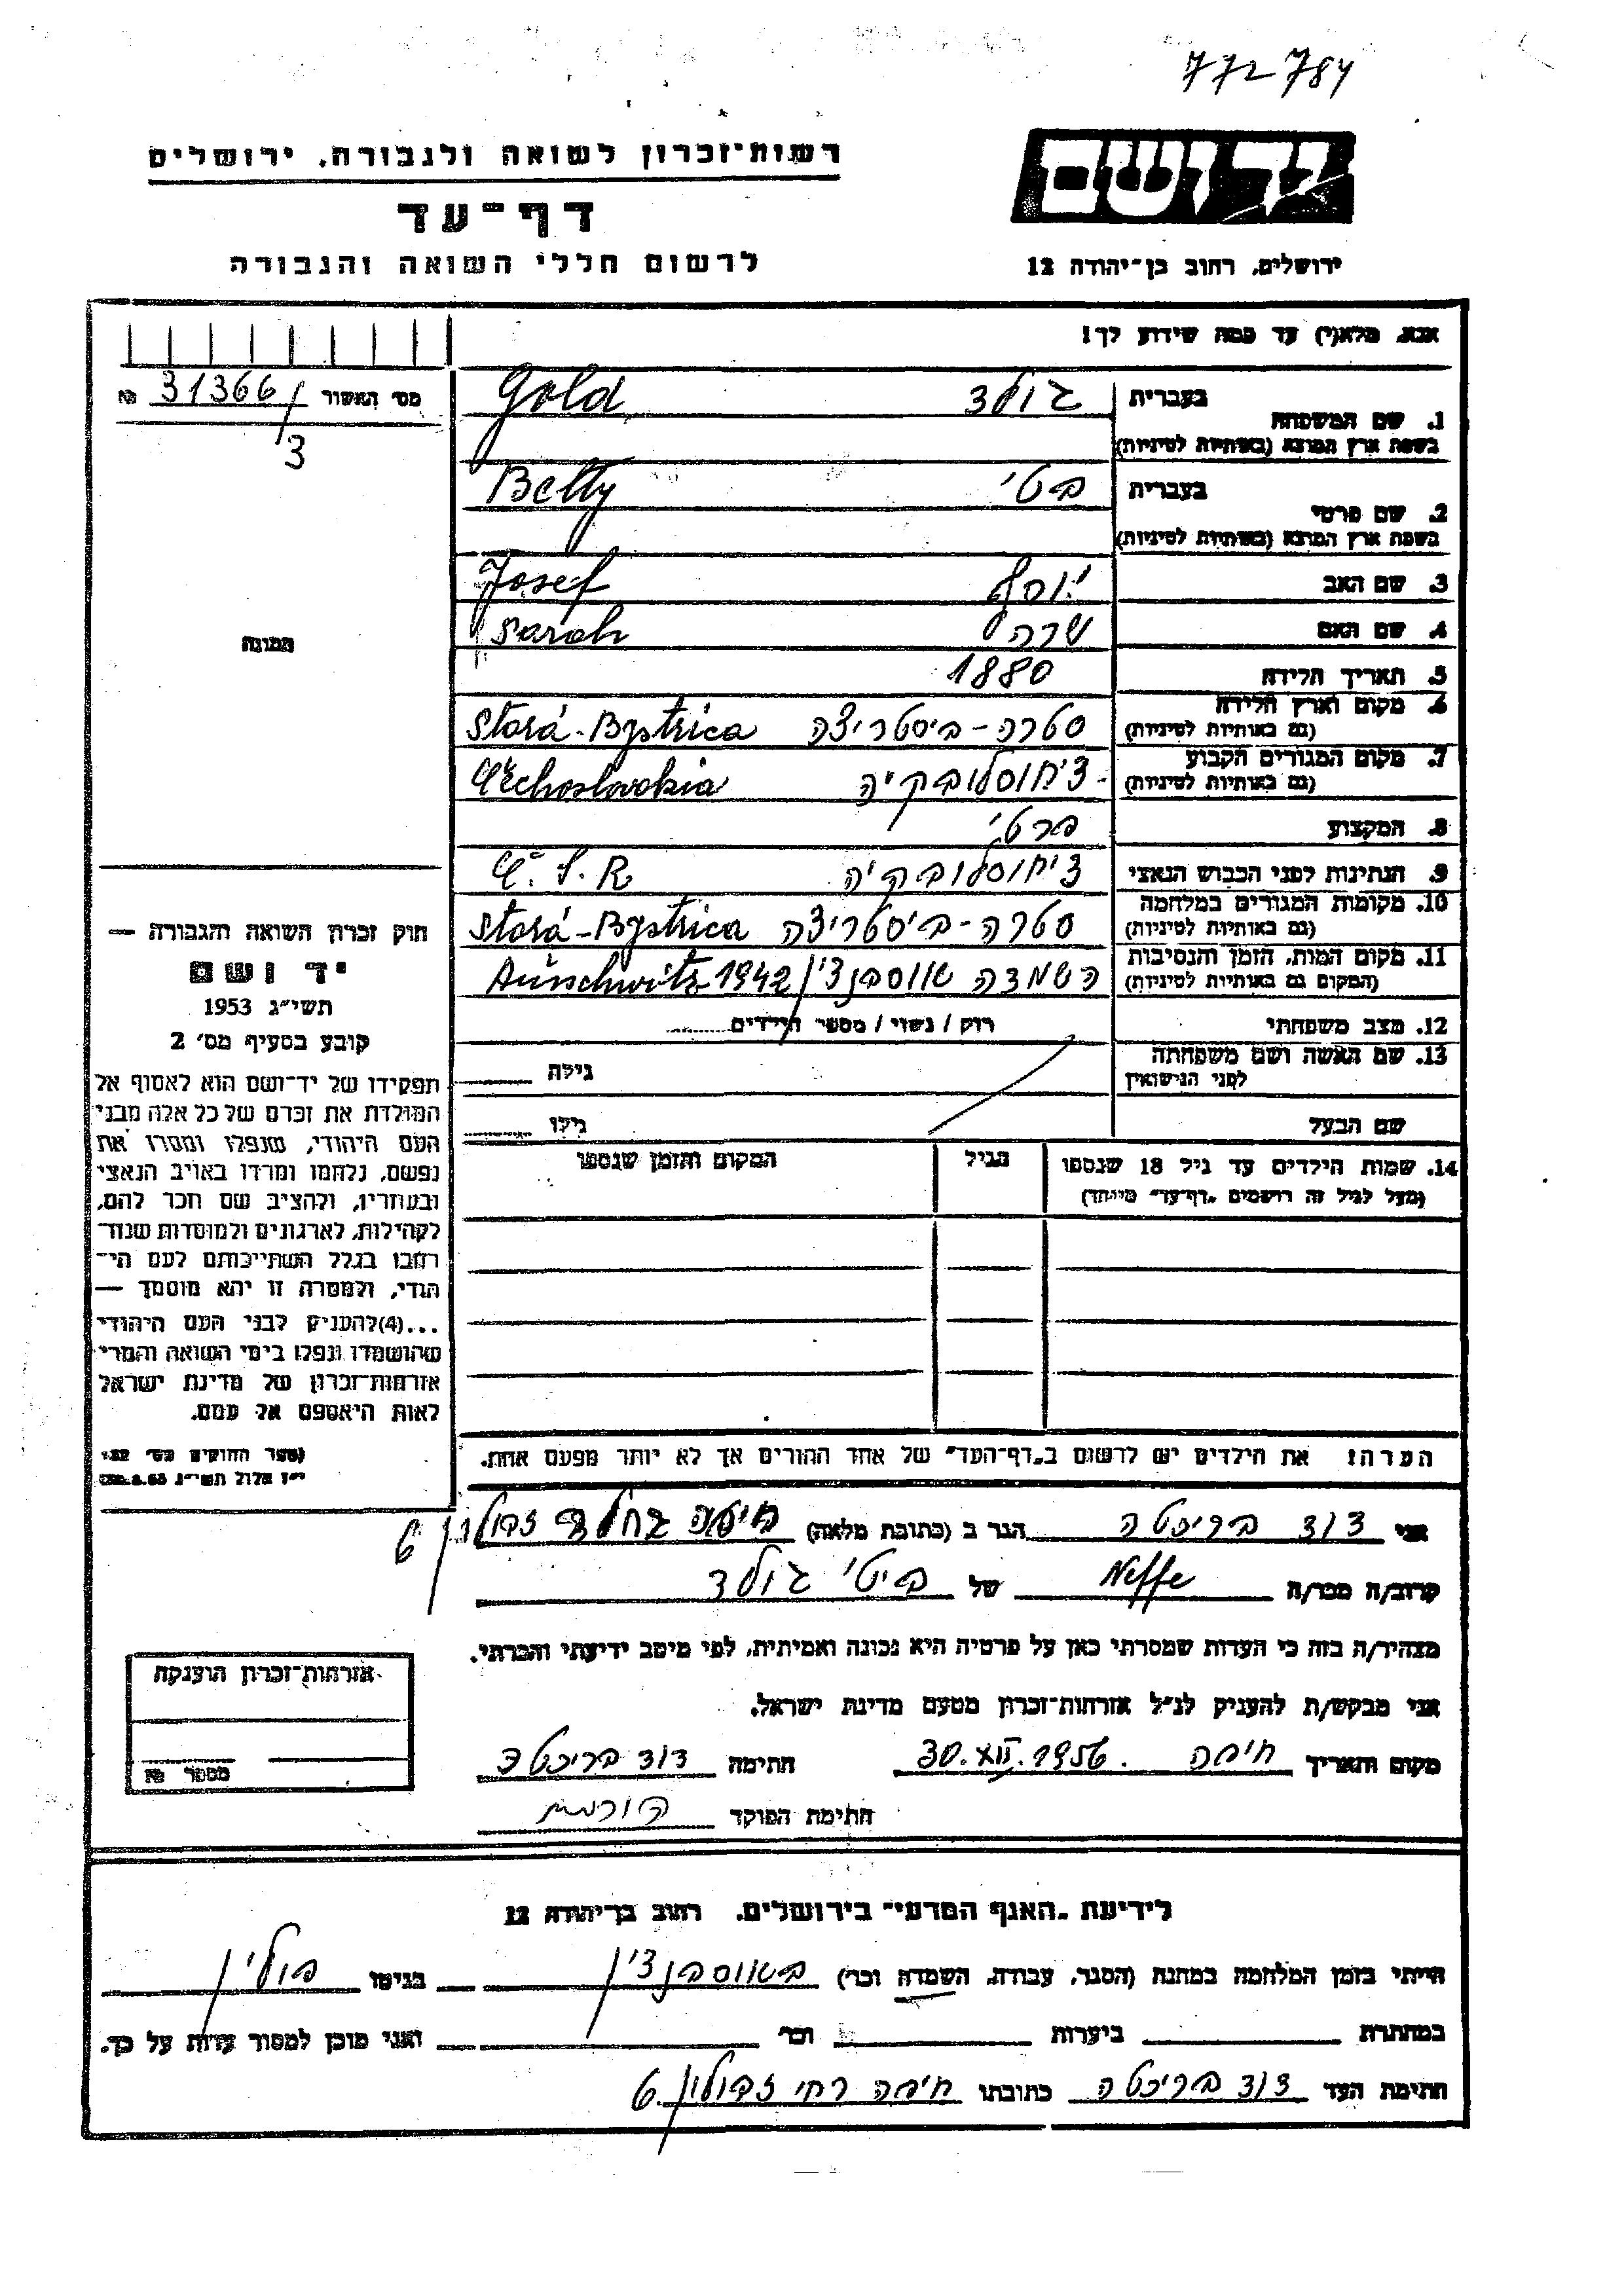 772784
רשות־זכרון לשואה ולגבורה, ירושלים
יד ושם
דף־עד
ירושלים, רחוב בן־יהודה 12
לרשום חללי השואה והגבורה
אנא, מלא(י) עד כמה שידוע לך!
מס׳ האשור 31366/3 №
1. שם המשפחה בעברית גולד Gold
בשפת ארץ המוצא (באותיות לטיניות)
2. שם פרטי בעברית בטי Betty
בשפת ארץ המוצא (באותיות לטיניות)
3. שם האב יוסף Josef
4. שם האם שרה Sarah
5. תאריך הלידה 1880
6. מקום וארץ הלידה (גם באותיות לטיניות) סטרה-ביסטריצה Stará-Bystrica
7. מקום המגורים הקבוע (גם באותיות לטיניות) צ׳חוסלובקיה Čechoslovakia
8. המקצוע פרטי
9. הנתינות לפני הכבוש הנאצי ציחוסלובקיה Č.S.R
10. מקומות המגורים במלחמה (גם באותיות לטיניות) סטרה-ביסטריצה Stará-Bystrica
11. מקום המות, הזמן והנסיבות (המקום גם באותיות לטיניות) השמדה אווסבנצ׳ין Auschwitz 1942
12. מצב משפחתי רווק / נשוי / מספר הילדים
13. שם האשה ושם משפחתה לפני הנישואין גילה
שם הבעל גילו
14. שמות הילדים עד גיל 18 שנספו הגיל המקום והזמן שנספו
(מעל לגיל זה רושמים „דף־עד״ מיוחד)
הערה! את הילדים יש לרשום ב„דף־העד״ של אחד ההורים אך לא יותר מפעם אחת.
התמונה
חוק זכרון השואה והגבורה —
יד ושם
תשי״ג 1953
קובע בסעיף מס׳ 2
תפקידו של יד־ושם הוא לאסוף אל
המולדת את זכרם של כל אלה מבני
העם היהודי, שנפלו ומסרו את
נפשם, נלחמו ומרדו באויב הנאצי
ובעוזריו, ולהציב שם וזכר להם,
לקהילות, לארגונים ולמוסדות שנח־
רבו בגלל השתייכותם לעם הי־
הודי, ולמטרה זו יהא מוסמך —
...(4)להעניק לבני העם היהודי
שהושמדו ונפלו בימי השואה והמרי
אזרחות־זכרון של מדינת ישראל
לאות היאספם אל עמם.
(ספר החוקים מס׳ 132
י״ז אלול תשי״ג 28.8.53)
אני דוד הגר ב (כתובת מלאה) חיפה זבולון 6
קרוב/ה מכר/ה Neffe של בטי גולד
מצהיר/ה בזה כי העדות שמסרתי כאן על פרטיה היא נכונה ואמיתית, לפי מיטב ידיעתי והכרתי.
אני מבקש/ת להעניק לנ״ל אזרחות־זכרון מטעם מדינת ישראל.
מקום ותאריך חיפה 30.XII.1956 חתימה דוד
חתימת הפוקד
אזרחות־זכרון הוענקה
מספר №
לידיעת „האגף המדעי״ בירושלים, רחוב בן־יהודה 12
הייתי בזמן המלחמה במחנה (הסגר, עבודה, השמדה וכו׳) באווסבנצ׳ין בגיטו פולין
במחתרת ביערות וכו׳ ואני מוכן למסור עדות על כך.
חתימת העד דוד כתובתו חיפה רח׳ זבולון 6